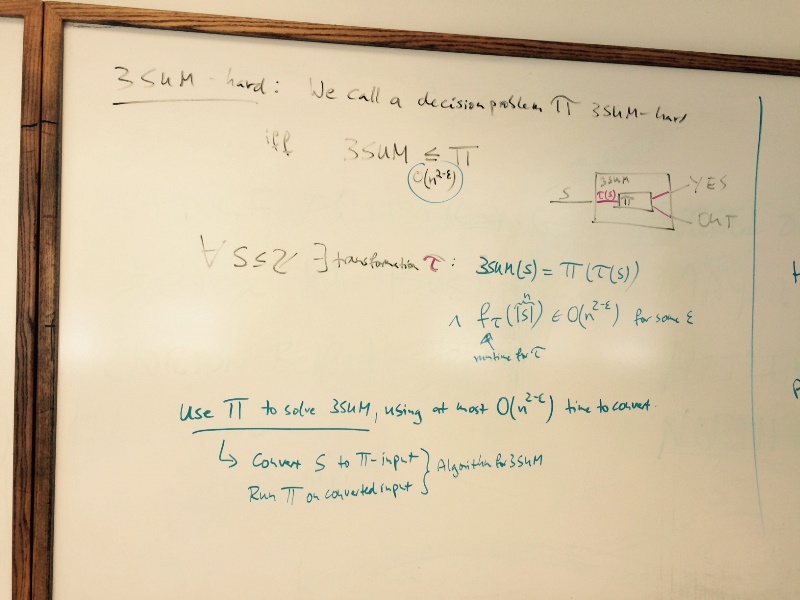 3SUM-hard: We call a decision problem Π 3SUM-hard
iff 3SUM ≤ Π
O(n^{2-ε})
S
3SUM
τ(s)
Π
YES
∀ S⊆ℤ ∃ transformation τ: 3SUM(s) = Π(τ(s))
n
∧ f_τ(|s|) ∈ O(n^{2-ε}) for some ε
runtime for τ
Use Π to solve 3SUM, using at most O(n^{2-ε}) time to convert.
↳ Convert S to Π-input } Algorithm for 3SUM
Run Π on converted input